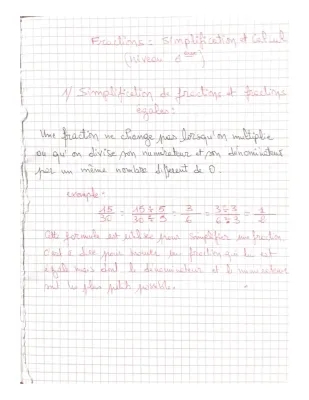 Fractions : Simplification et Calcul
(niveau 6ème)
1/ Simplification de fractions et fractions
égales :
Une fraction ne change pas lorsqu'on multiplie
ou qu'on divise son numérateur et son dénominateur
par un même nombre différent de 0.
exemple :
15/30 = 15÷5/30÷5 = 3/6 = 3÷3/6÷3 = 1/2
Cette formule est utilisée pour simplifier une fraction
c'est à dire pour trouver une fraction qui lui est
égale mais dont le dénominateur et le numérateur
sont les plus petits possible.